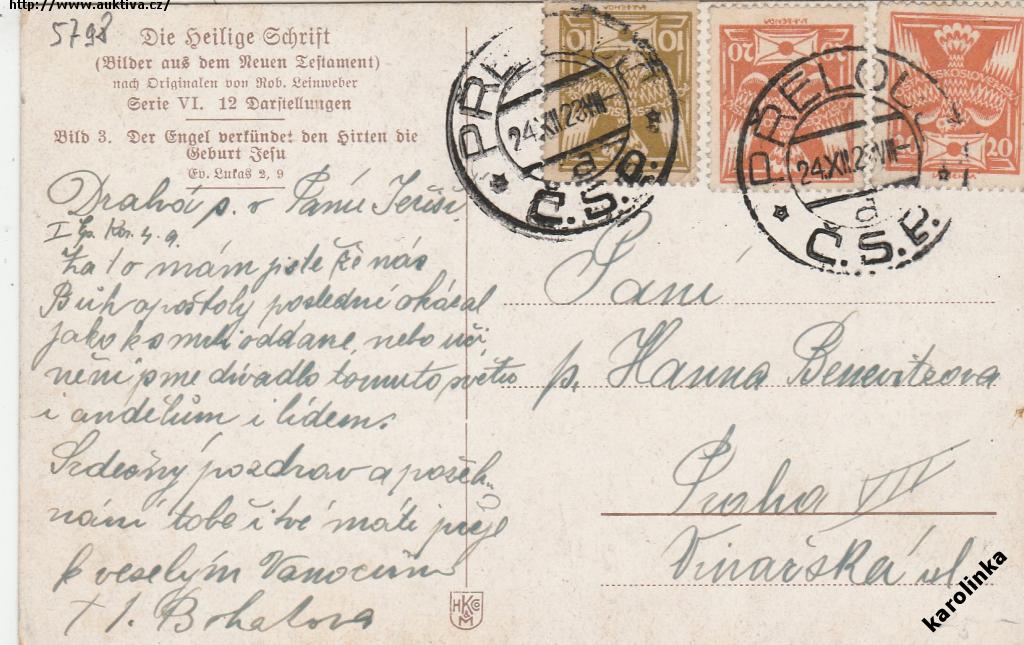 http://www.auktiva.cz/
5798
Die Heilige Schrift
(Bilder aus dem Neuen Testament)
nach Originalen von Rob. Leinweber
Serie VI. 12 Darstellungen
Bild 3. Der Engel verkündet den Hirten die
Geburt Jesu
Ev. Lukas 2, 9
Drahá s. v Pánu Ježíši
I Ep. Kor. 4. 9.
Za to mám jiste že nás
Bůh apoštoly poslední okázal
jako k smrti oddané, nebo uči
něni jsme divadlo tomuto světu
i andělům i lidem.
Srdečný pozdrav a požeh-
nání tobě i tvé máti
k veselým Vanocům
J. Bohatova
10
20
20
PŘELOUČ
24.XII.23.VIII
a
Č.S.P.
PŘELOUČ
24.XII.23.VIII
a
Č.S.P.
Paní
p. Hanna
Praha VII
Vinařská ul
HKCo
&M
karolinka